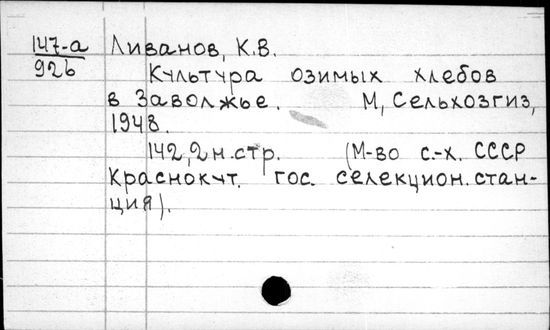 147-а Ливанов, К.В.
926
Культура озимых хлебов
в Заволжье. М, Сельхозгиз,
1948.
142,2н.стр. (М-во с.-х. СССР
Краснокут. гос. селекцион. стан-
ция).